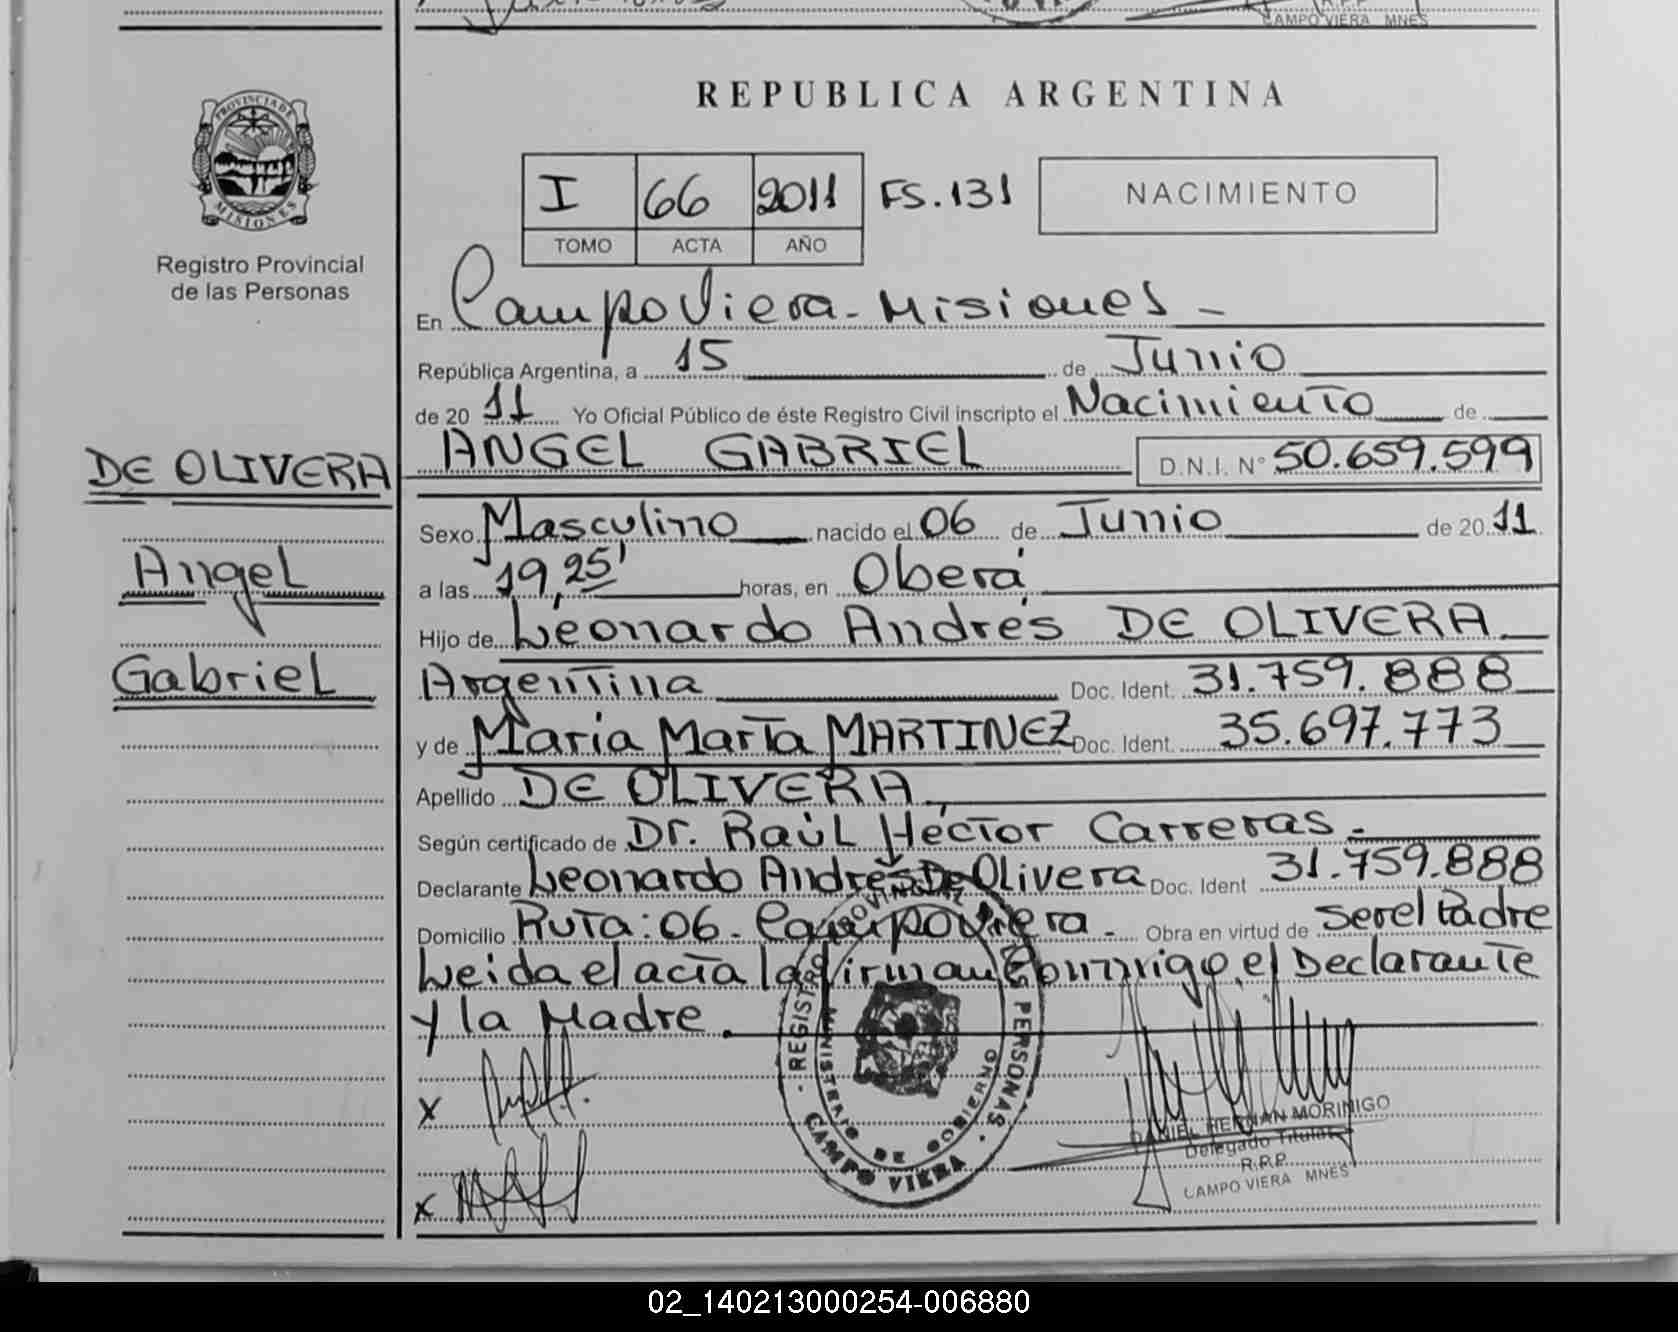 CAMPO VIERA MNES
REPUBLICA ARGENTINA
PROVINCIA DE
MISIONES
Registro Provincial
de las Personas
I 66 2011 FS.131 NACIMIENTO
TOMO ACTA AÑO
En Campo Viera - Misiones -
República Argentina, a 15 de Junio
de 20 11 Yo Oficial Público de éste Registro Civil inscripto el Nacimiento de
DE OLIVERA
Angel
Gabriel
ANGEL GABRIEL D.N.I. N° 50.659.599
Sexo Masculino nacido el 06 de Junio de 20 11
a las 19,25' horas, en Oberá
Hijo de Leonardo Andrés DE OLIVERA
Argentina Doc. Ident. 31.759.888
y de María Marta MARTINEZ Doc. Ident. 35.697.773
Apellido DE OLIVERA
Según certificado de Dr. Raúl Héctor Carreras -
Declarante Leonardo Andrés De Olivera Doc. Ident 31.759.888
Domicilio Ruta: 06 - Campo Viera - Obra en virtud de ser el Padre
Leida el acta la firman conmigo el Declarante
y la Madre.
x
x
REGISTRO PROVINCIAL PERSONAS
MINISTERIO DE GOBIERNO
CAMPO VIERA
DANIEL HERNAN MORINIGO
Delegado Titular
R.R.P.
CAMPO VIERA MNES
02_140213000254-006880